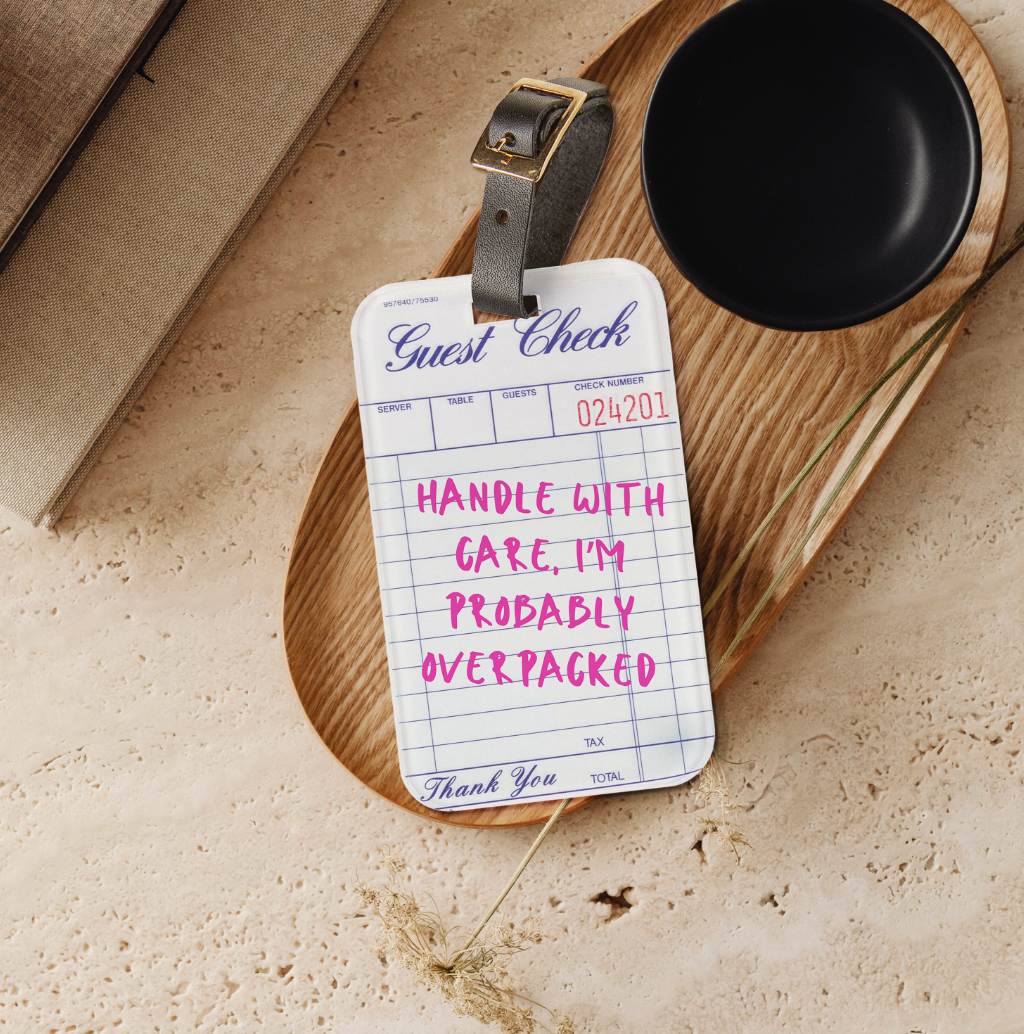 957640/75530
Guest Check
SERVER TABLE GUESTS CHECK NUMBER
024201
HANDLE WITH
CARE, I'M
PROBABLY
OVERPACKED
TAX
Thank You TOTAL